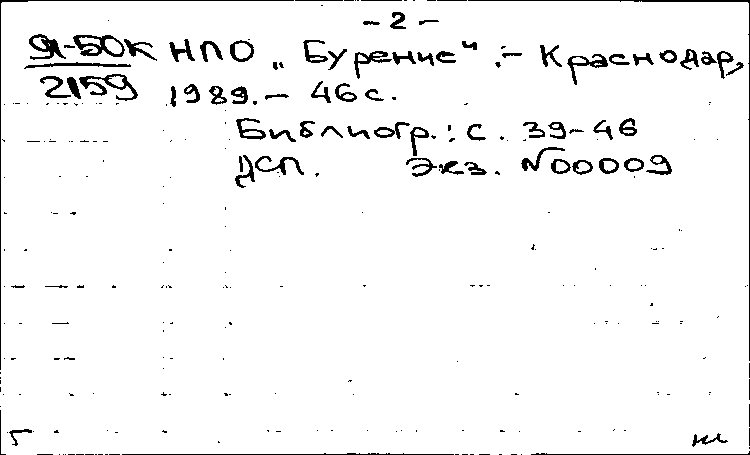 - 2 -
Я-50К НПО „Бурение“. - Краснодар,
2159 1989. - 46 с.
Библиогр.: с. 39-46
ДСП. Экз. №00009